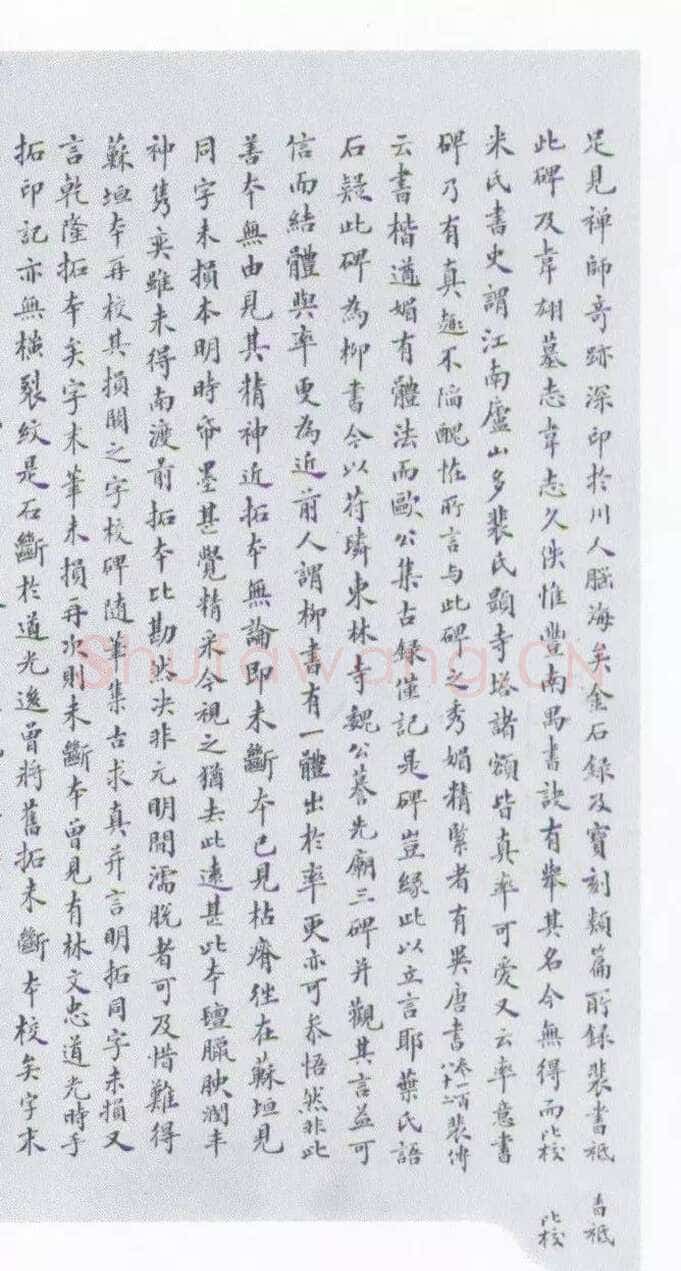 足見禅師奇跡深印於川人腦海矣金石錄及寶刻類篇所錄裴書袛
此碑及韋翃墓志韋志久佚惟豐南禺書訣有舉其名今無得而比校
米氏書史謂江南廬山多裴氏題寺塔諸額皆真率可愛又云率意書
碑乃有真趣不陷醜怪所言与此碑之秀媚精緊者有異唐書卷一百八十二裴傳
云書楷遒媚有體法而歐公集古録僅記是碑豈緣此以立言耶葉氏語
石疑此碑為柳書今以苻璘東林寺魏公謩先廟三碑并觀其言益可
信而結體與率更為近前人謂柳書有一體出於率更亦可参悟然非此
善本無由見其精神近拓本無論即未斷本已見枯瘠往在蘇垣見
同字未損本明時帋墨甚覺精采今視之猶去此遠甚此本氊臘腴潤丰
神隽爽雖未得南渡前拓本比勘然决非元明間濡脱者可及惜難得
蘇垣本再校其損闕之字校碑随筆集古求真并言明拓同字未損又
言乾隆拓本矣字末筆未損再次則未斷本曾見有林文忠道光時手
拓印記亦無橫裂紋是石斷於道光後曾將舊拓未斷本校矣字末
書袛
比校
Shufawang.CN